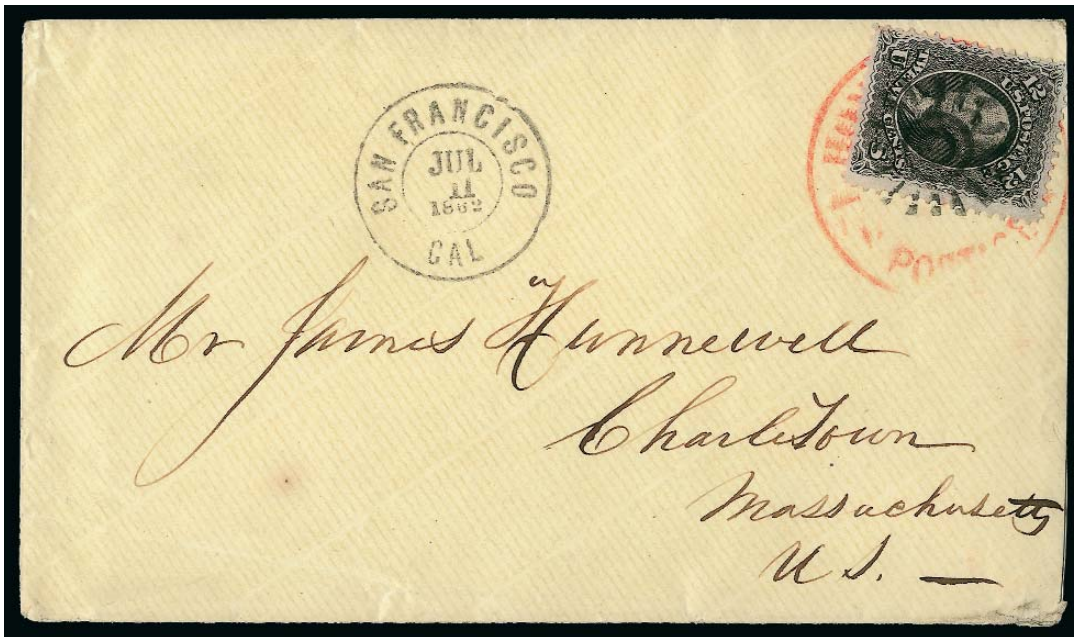 SAN FRANCISCO
JUL
11
1862
CAL
12 U.S. POSTAGE 12
U STATES S
POSTAGE
Mr James Hunnewell
Charlestown
Massachusetts
U S. —